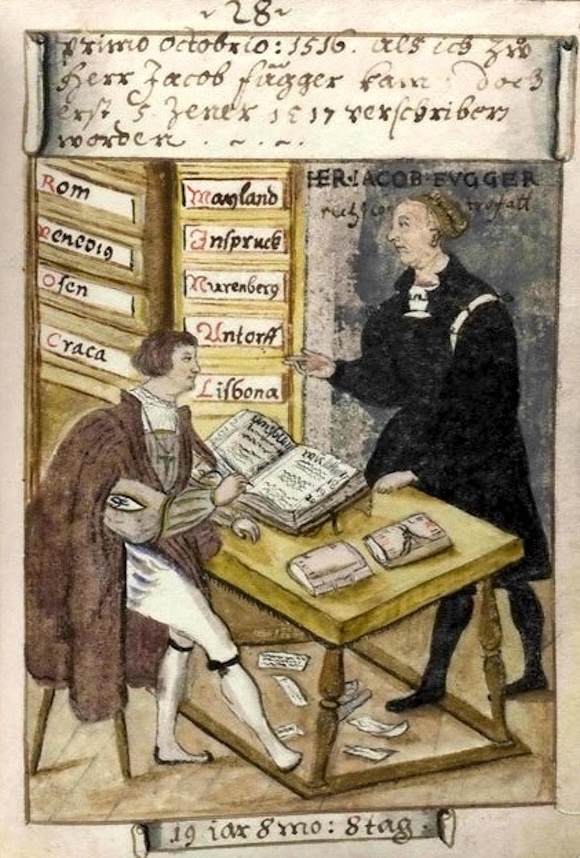 28
primo octobrio: 1516. als ich zů
Herr Jacob fugger kam: doch
erst 5. Jener 1517 verschriben
worden
Rom
Venedig
Ofen
Craca
Mayland
Inspruck
Nurenberg
Antorff
Lisbona
HER·IACOB·FVGGER
19 iar 8 mo: 8 tag.